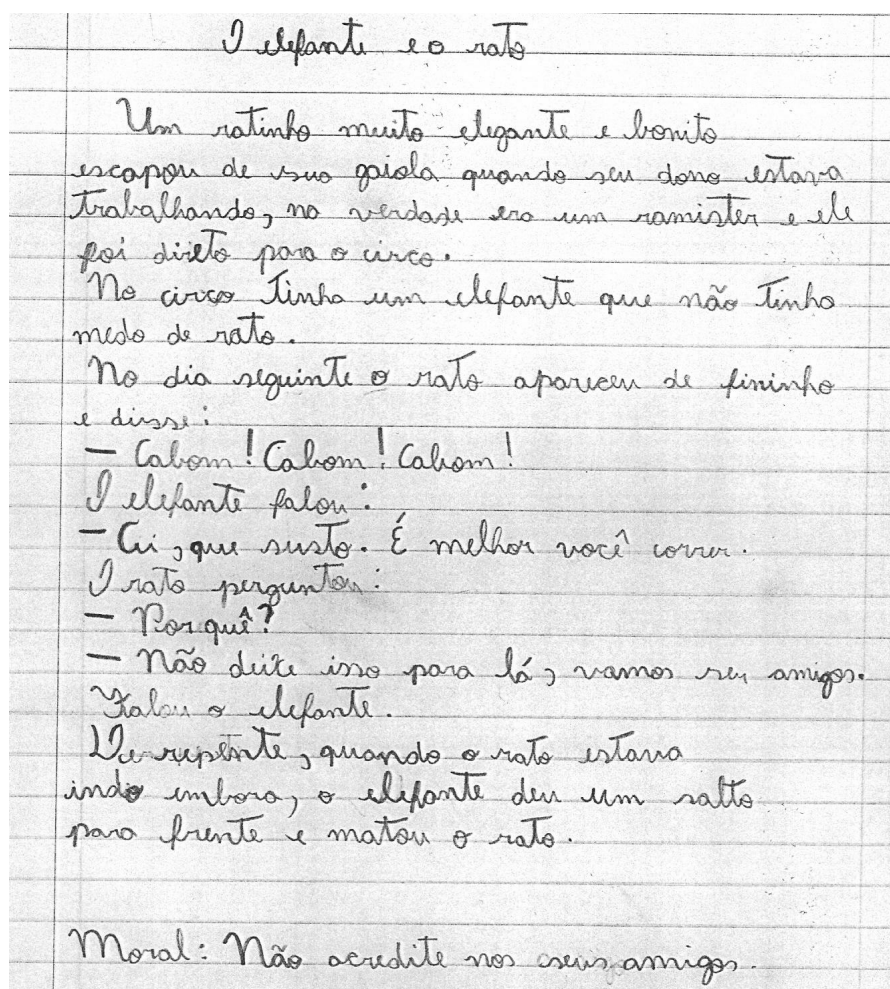 O elefante e o rato
Um ratinho muito elegante e bonito
escapou de sua gaiola quando seu dono estava
trabalhando, na verdade era um ramister e ele
foi direto para o circo.
No circo tinha um elefante que não tinha
medo de rato.
No dia seguinte o rato apareceu de fininho
e disse:
— Cabom! Cabom! Cabom!
O elefante falou:
— Ai, que susto. É melhor você correr.
O rato perguntou:
— Porquê?
— Não deixe isso para lá, vamos ser amigos.
Falou o elefante.
De repente, quando o rato estava
indo embora, o elefante deu um salto
para frente e matou o rato.
Moral: Não acredite nos seus amigos.